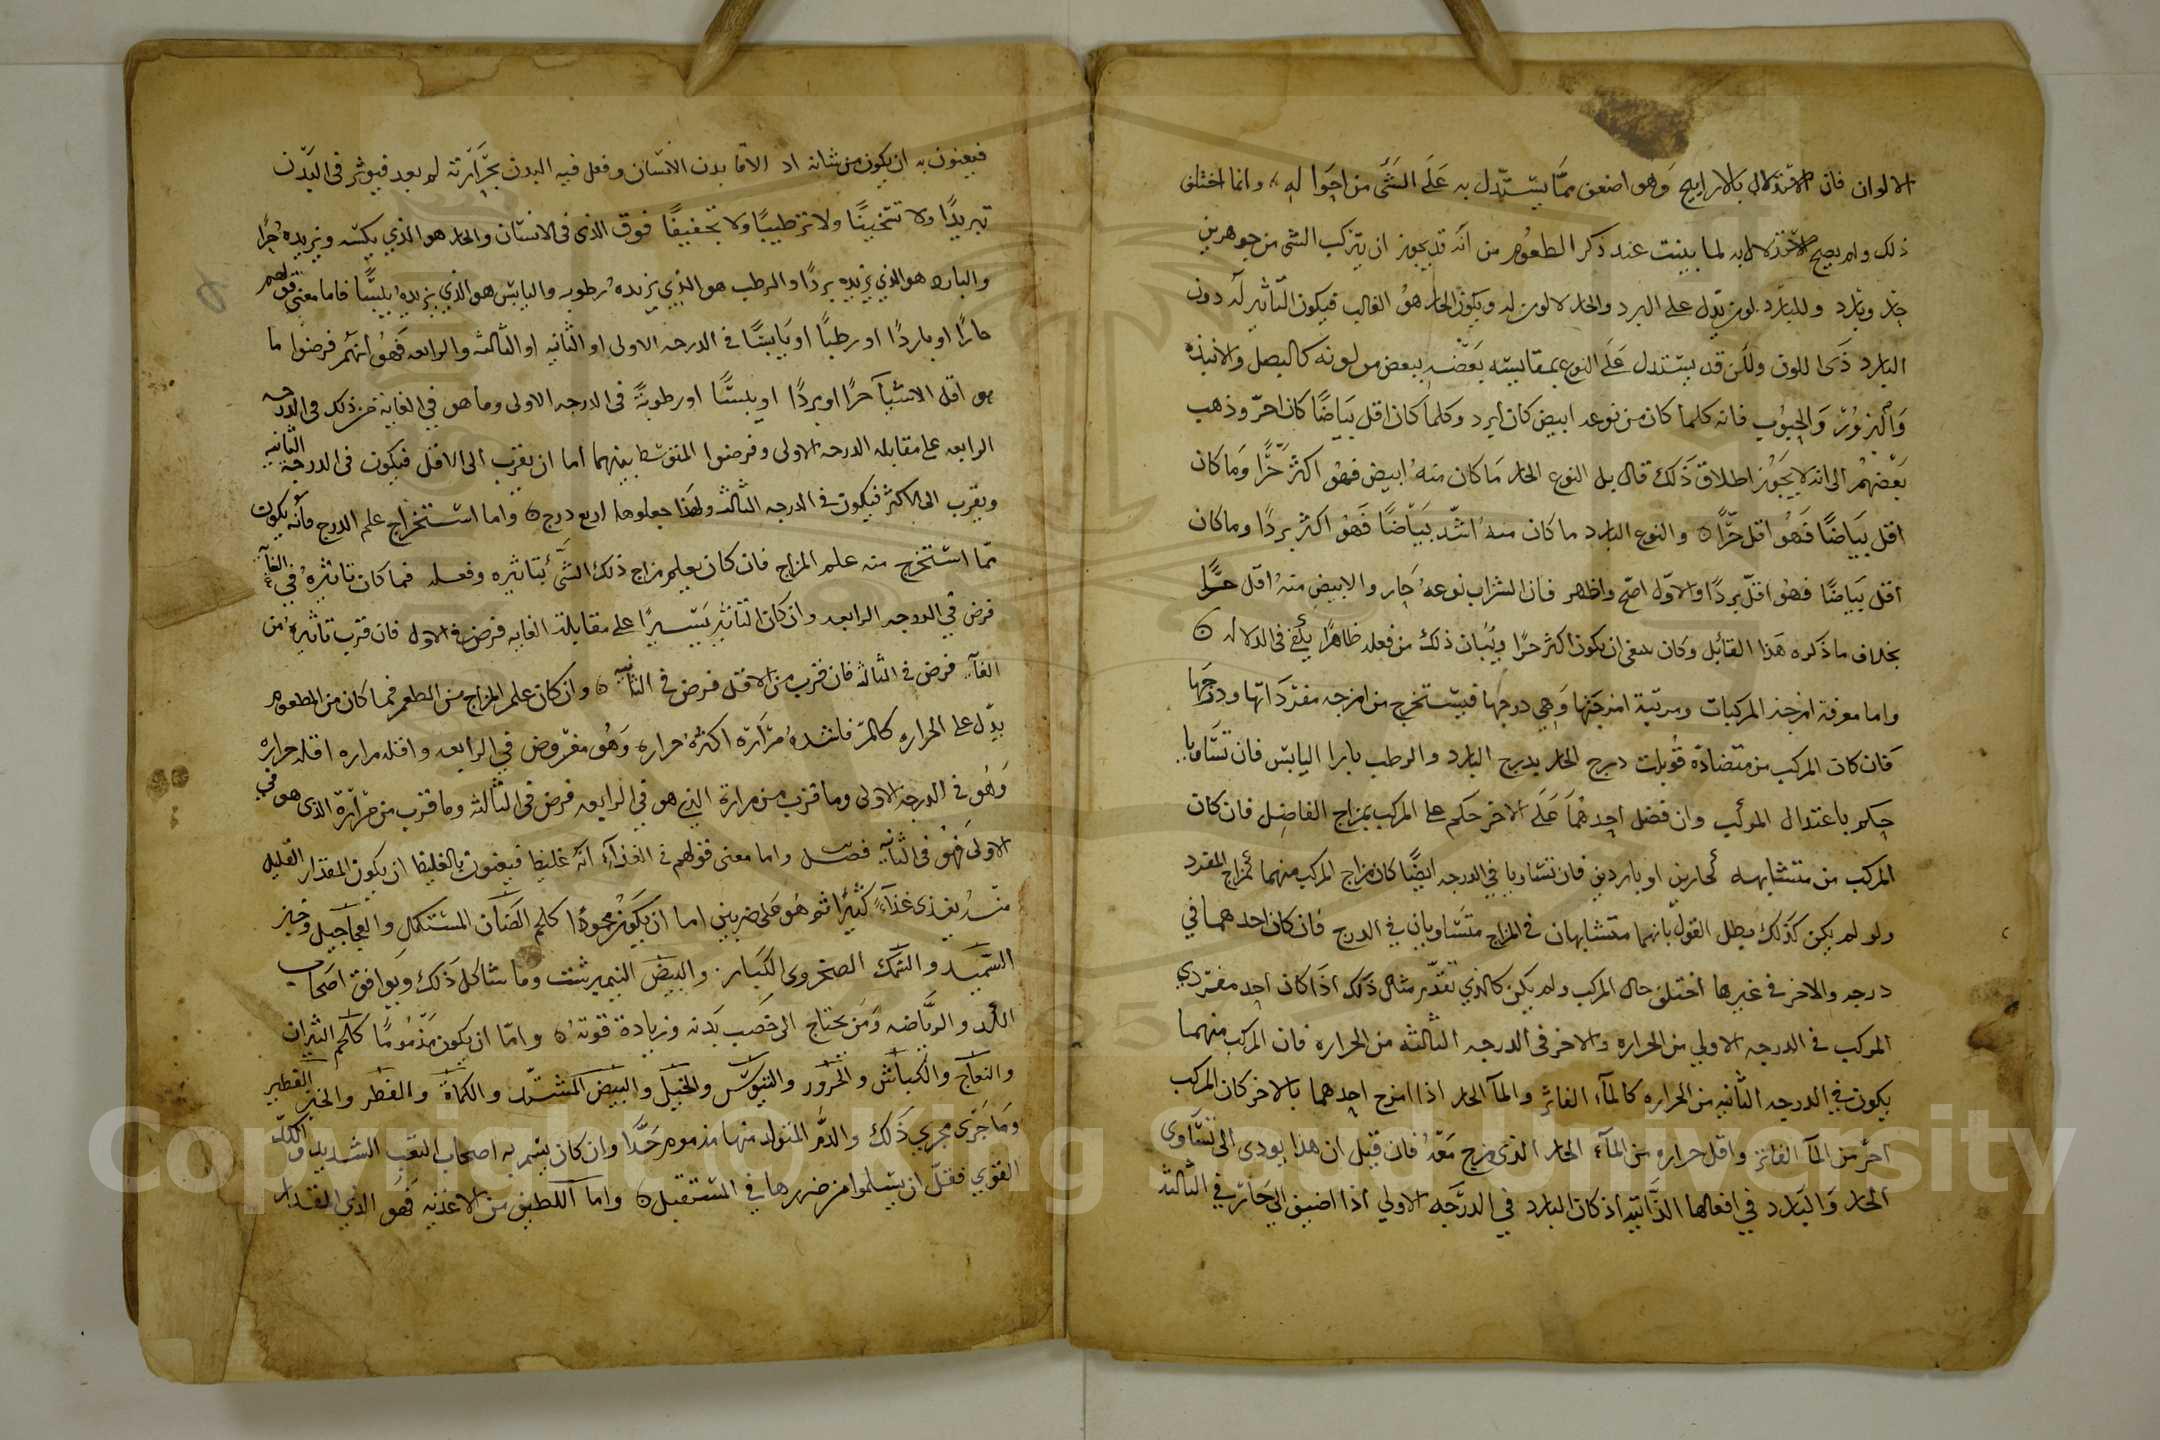 الالوان فان الاستدلال بالاراييح وهو اضعف مما يستدل به على الشئ من احواله وانما اختلف
ذلك ولم يصح الاستدلال به لما بينت عند ذكر الطعوم من انه قد يجوز ان يتركب الشى من جوهرين
حار وبارد وللبارد لون يدل على البرد والحار لا لون له ويكون الحار هو الغالب فيكون التاثير له دون
البارد ذى اللون ولكن قد يستدل على النوع بمقايسة بعضه ببعض من لونه كالبصل والانبذه
والبزور والحبوب فانه كلما كان من نوعه ابيض كان ابرد وكلما كان اقل بياضا كان احر وذهب
بعضهم الى انه لا يجوز اطلاق ذلك قال بل النوع الحار ما كان منه ابيض فهو اكثر حرا وما كان
اقل بياضا فهو اقل حرا ٥ والنوع البارد ما كان منه اشد بياضا فهو اكثر بردا وما كان
اقل بياضا فهو اقل بردا والاول اصح واظهر فان الشراب نوعه حار والابيض منه اقل حرا
بخلاف ما ذكره هذا القائل وكان ينبغى ان يكون اكثر حرا وبيان ذلك من فعله ظاهرا يكفى فى الدلاله ٥
واما معرفة امزجة المركبات ومرتبة امزجتها وهي درجها فيستخرج من امزجه مفرداتها ودرجها
فان كان المركب من متضادة قوبلت درج الحار بدرج البارد والرطب بازا اليابس فان تساويا
حكم باعتدال المركب وان فضل احدهما على الاخر حكم على المركب بمزاج الفاضل فان كان
المركب من متشابهه كحارين او باردين فان تساويا في الدرجه ايضا كان مزاج المركب منهما كمزاج المفرد
ولو لم يكن كذلك بطل القول بانهما متشابهان فى المزاج متساويان في الدرج فان كان احدهما في
درجه والاخر في غيرها اختلف حال المركب ولم يكن كالذي تقدم مثال ذلك اذا كان احد مفردي
المركب في الدرجه الاولي من الحراره والاخر فى الدرجه الثالثه من الحراره فان المركب منهما
يكون في الدرجه الثانيه من الحراره كالمآء الفاتر والمآ الحار اذا امزج احدهما بالاخر كان المركب
احر من المآ الفاتر واقل حراره من المآء الحار الذى مزج معه فان قيل ان هذا يودى الى تساوى
الحار والبارد في افعالها الذاتيه اذ كان البارد في الدرجه الاولي اذا اضيف الي حار في الثالثه
فيعنون به ان يكون من شانه اذا لاقا بدن الانسان وفعل فيه البدن بحرارته لم يعد فيوثر فى البدن
تبريدا ولا تسخينا ولا ترطيبا ولا تجفيفا فوق الذى فى الانسان والحار هو الذي يكسبه ويزيده حرا
والبارد هو الذي يزيده بردا والرطب هو الذي يزيده رطوبه واليابس هو الذي يزيده يبسا فاما معنى قولهم
حارا او باردا او رطبا او يابسا في الدرجه الاولى او الثانيه او الثالثه والرابعه فهو انهم فرضوا ما
هو اقل الاشيآ حرا او بردا او يبسا او رطوبة فى الدرجه الاولى وما هو في الغاية من ذلك فى الدرجه
الرابعه على مقابله الدرجه الاولى وفرضوا المتوسط بينهما اما ان يقرب الى الاقل فيكون فى الدرجه الثانيه
ويقرب الى الاكثر فيكون في الدرجه الثالثه ولهذا جعلوها اربع درج ٥ واما استخراج علم الدرج فانه يكون
مما استخرج منه علم المزاج فان كان يعلم مزاج ذلك الشئ بتاثيره وفعله فما كان تاثيره في الغايه
فرض في الدرجه الرابعه وان كان التاثير يسيرا على مقابلة الغايه فرض فى الاول فان قرب تاثيره من
الغآيه فرض في الثالثه فان قرب من الاقل فرض في الثانيه ٥ وان كان علم المزاج من الطعم فما كان من المطعوم
يدل على الحراره كالمر فاشده مرارة اكثره حراره وهو مفروض في الرابعه واقله مراره اقله حراره
وهو فى الدرجه الاولى وما قرب من مرارة الذي هو في الرابعه فرض فى الثالثه وما قرب من مرارة الذى هو في
الاولى فهو فى الثانيه فصل واما معنى قولهم في الغذآء انه غليظ فيعنون بالغليظ ان يكون المقدار القليل
منه يغذى غذآء كثيرا ثم هو على ضربين اما ان يكون محمودا كلحم الضان المستكمل والعجاجيل وخبز
السميد والسمك الصخروى الكبار والبيض النيمبرشت وما شاكل ذلك ويوافق اصحاب
الكد والرياضه ومن يحتاج الى خصب بدنه وزيادة قوته ٥ واما ان يكون مذموما كلحم الثيران
والنعاج والكباش والجزور والتيوس والخيل والبيض المشتد والكماة والفطر والخبز الفطير
وما جرى مجري ذلك والدم المتولد منها مذموم جدا وان كان يتم به اصحاب التعب الشديد والكد
القوي فقل ان يسلموا من ضررها في المستقبل ٥ واما اللطيف من الاغذيه فهو الذي المقدار